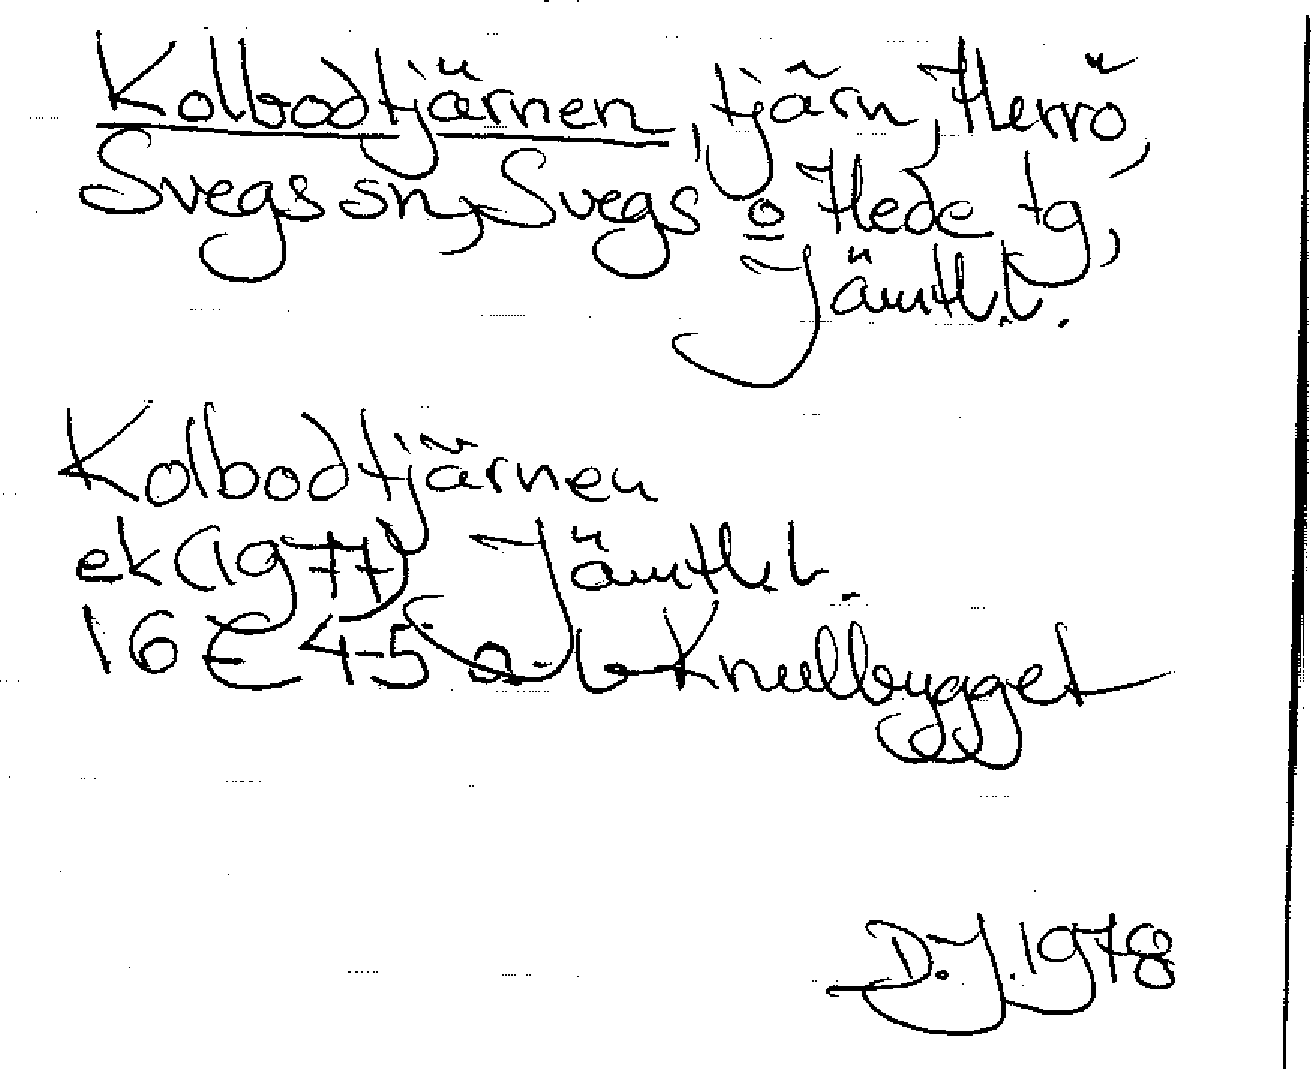 Kolbodtjärnen, tjärn, Herrö,
Svegs sn, Svegs o Hede tg,
Jämtl.l.
Kolbodtjärnen
ek (1977) Jämtl.l.
16E 4-5 a-b Knullbygget
D.J. 1978